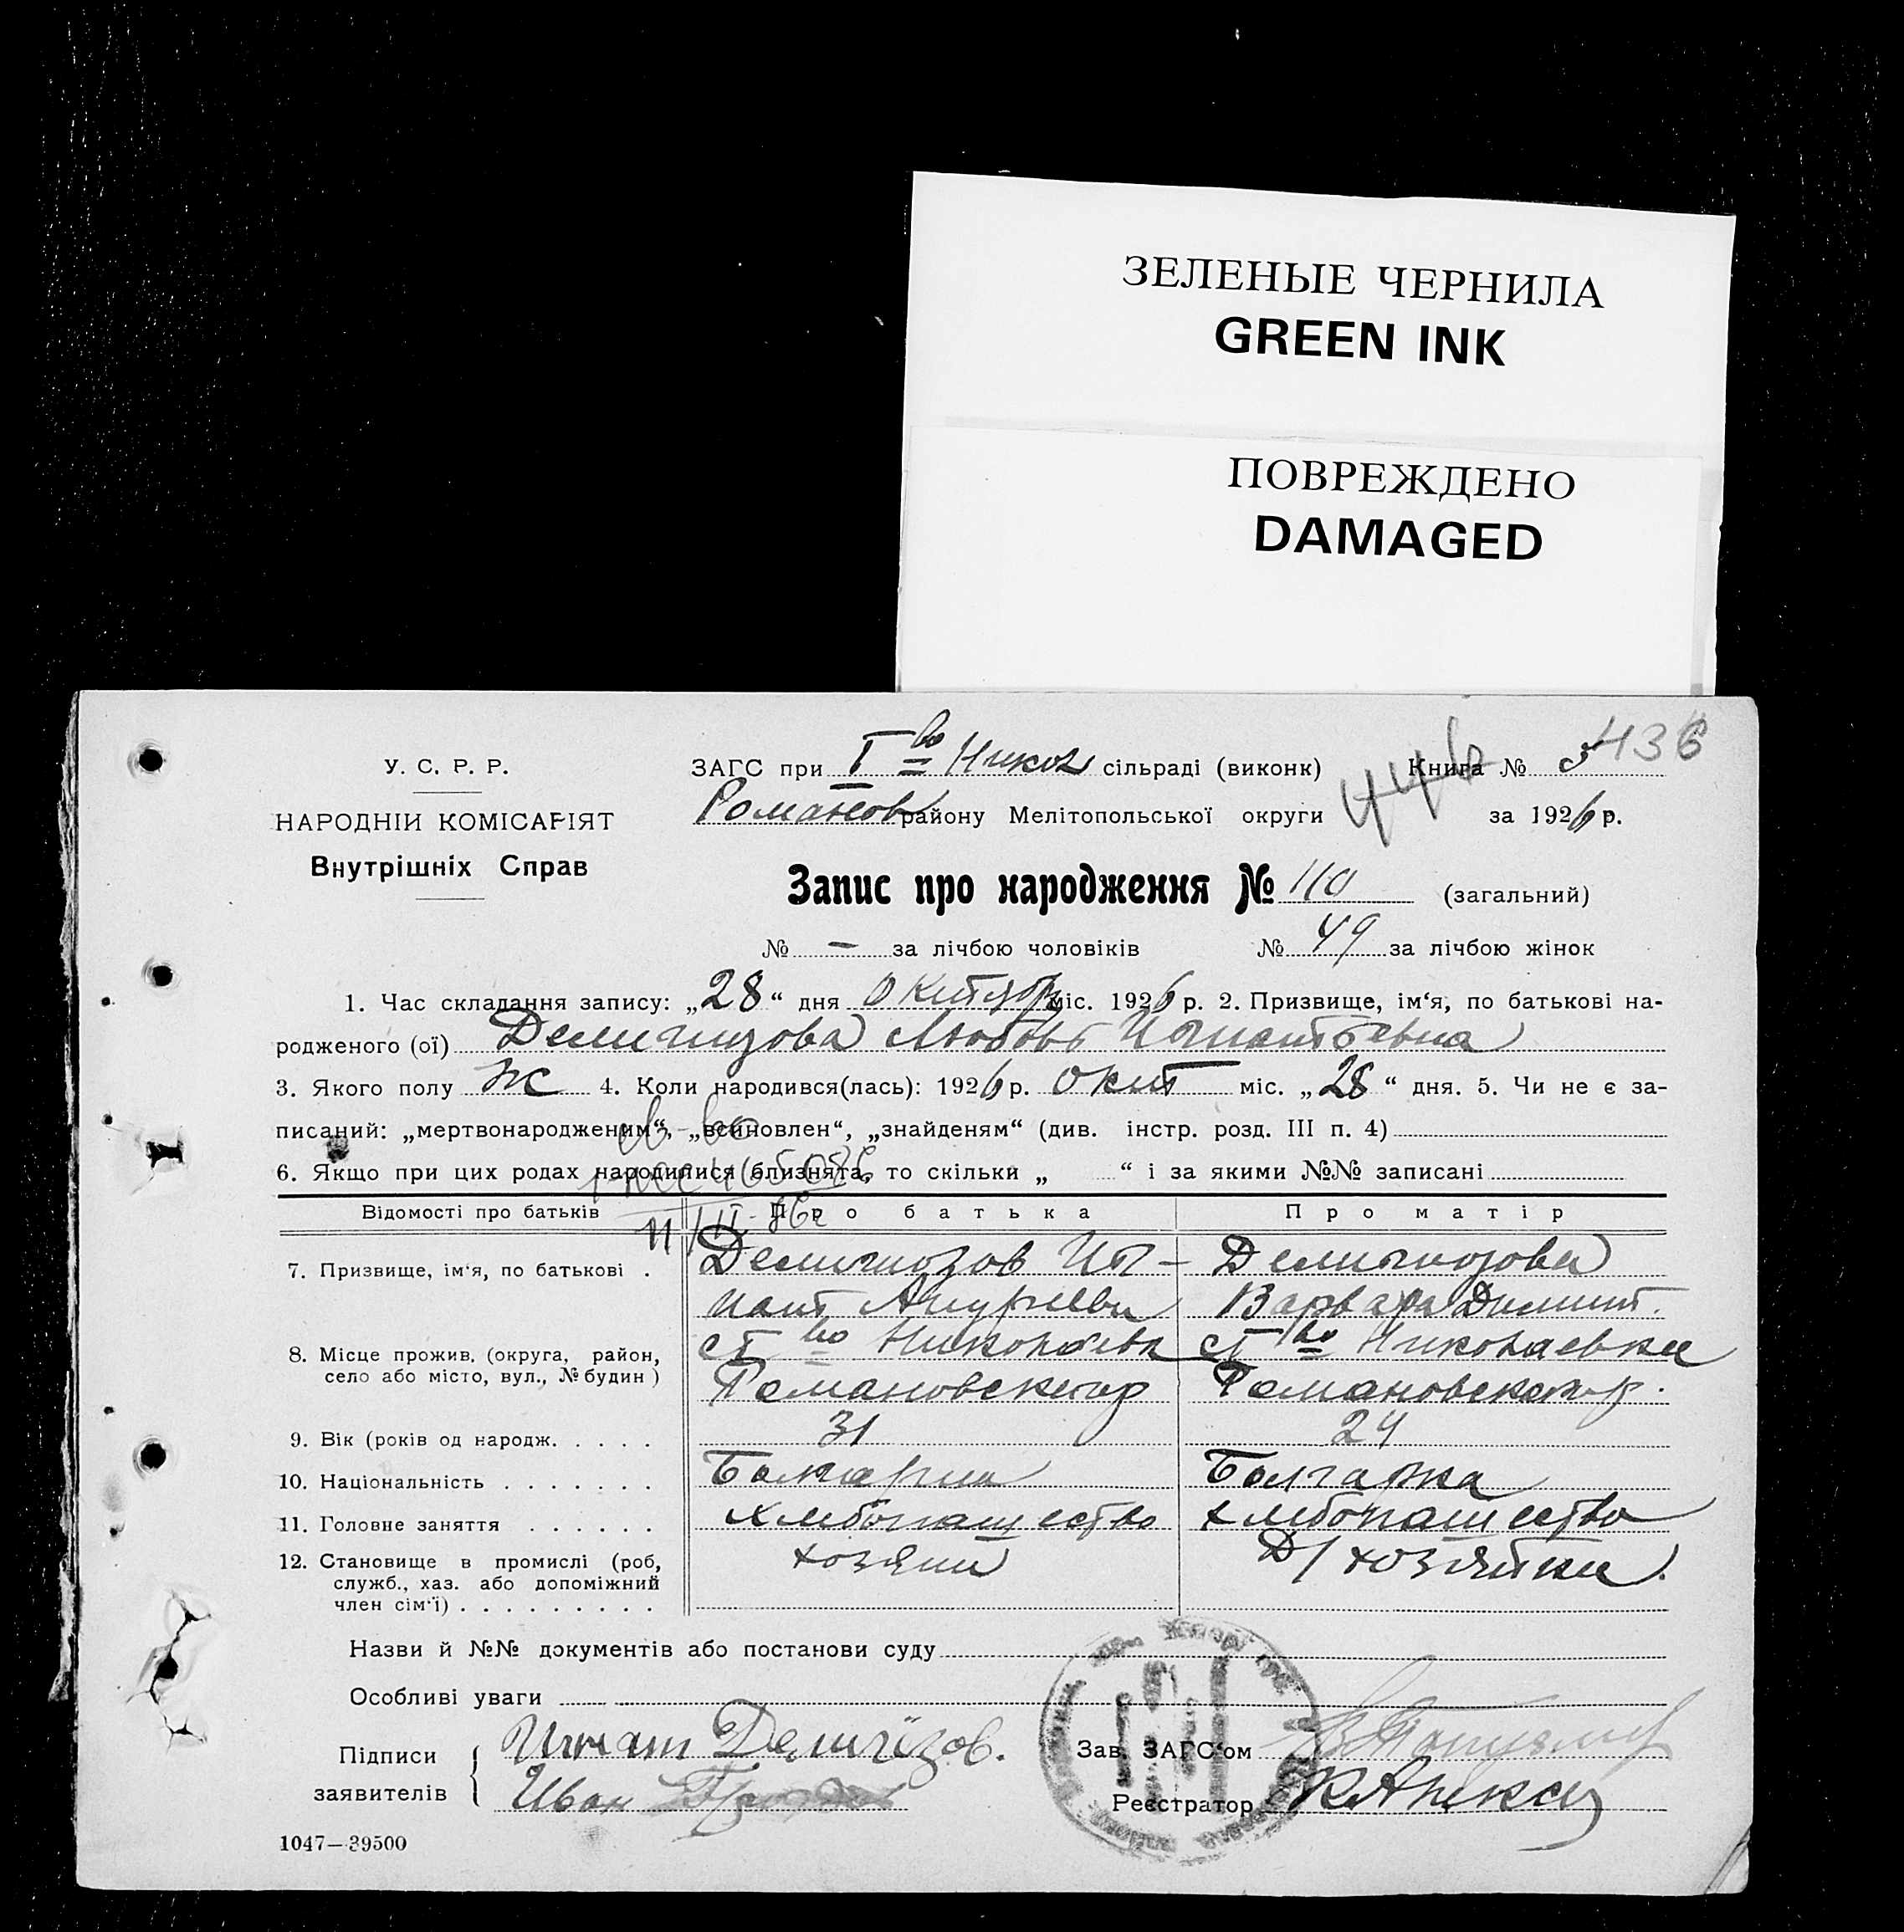 ЗЕЛЕНЫЕ ЧЕРНИЛА
GREEN INK
ПОВРЕЖДЕНО
DAMAGED
436
446
У. С. Р. Р.
НАРОДНІЙ КОМІСАРІЯТ
Внутрішніх Справ
ЗАГС при І во Никол сільраді (виконк) Книга № 3
Романов району Мелітопольської округи за 1926 р.
Запис про народження № 110 (загальний)
№ — за лічбою чоловіків № 49 за лічбою жінок
1. Час складання запису: „28“ дня октября міс. 1926 р. 2. Призвище, ім‘я, по батькові на-
родженого (ої) Делигиозова Любовь Игнатьевна
3. Якого полу ж 4. Коли народився(лась): 1926 р. окт міс. „28“ дня. 5. Чи не є за-
писаний: „мертвонародженим“, „всиновлен“, „знайденям“ (див. інстр. розд. III п. 4)
6. Якщо при цих родах народилися близнята, то скільки „ “ і за якими №№ записані
Відомості про батьків Про батька Про матір
7. Призвище, ім‘я, по батькові . Делигиозов Иг- Делигиозова
нат Варвара Димит.
8. Місце прожив. (округа, район, с І во Николаевк с І во Николаевка
село або місто, вул., № будин) Романовского р Романовского р.
9. Вік (років од народж. . . . . 31 24
10. Національність . . . . . . . Болгарин Болгарка
11. Головне заняття . . . . . . хлебопашество хлебопашество
12. Становище в промислі (роб, хозяин Д/хозяйка.
служб., хаз. або допоміжний
член сім‘ї) . . . . . . . . .
Назви й №№ документів або постанови суду
Особливі уваги
Підписи Игнат Делигіозов.
заявителів Иван
Зав. ЗАГС‘ом
Реєстратор
1047—39500